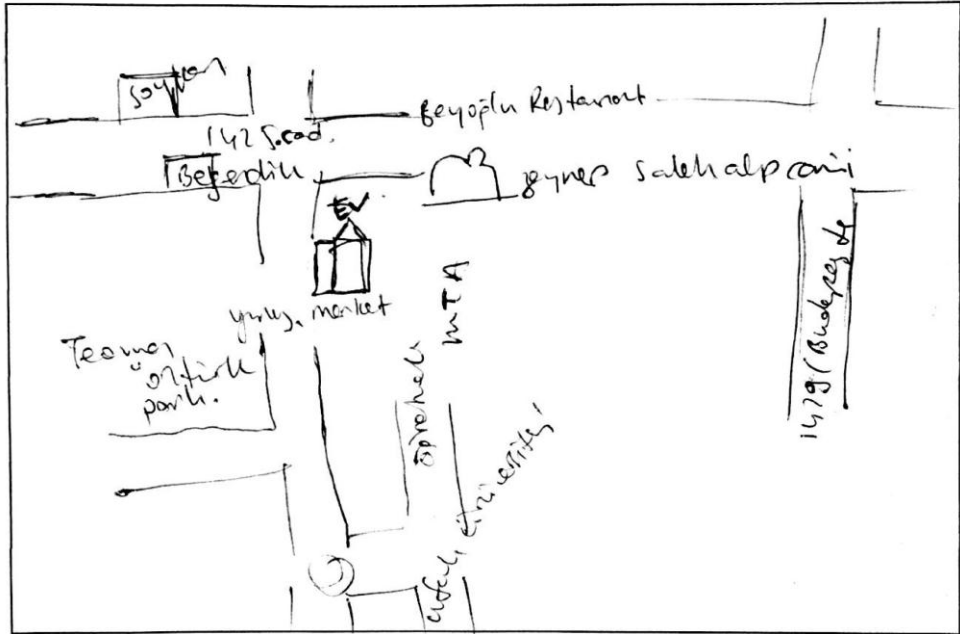 Soykan
Beyoğlu Restaurant
1425.cad.
Beğendik
Zeynep Salehalp cami
EV
market
MTA
Teoman
öztürk
park.
öprahek
ufuk üniversitesi
1479 (Budapeşte